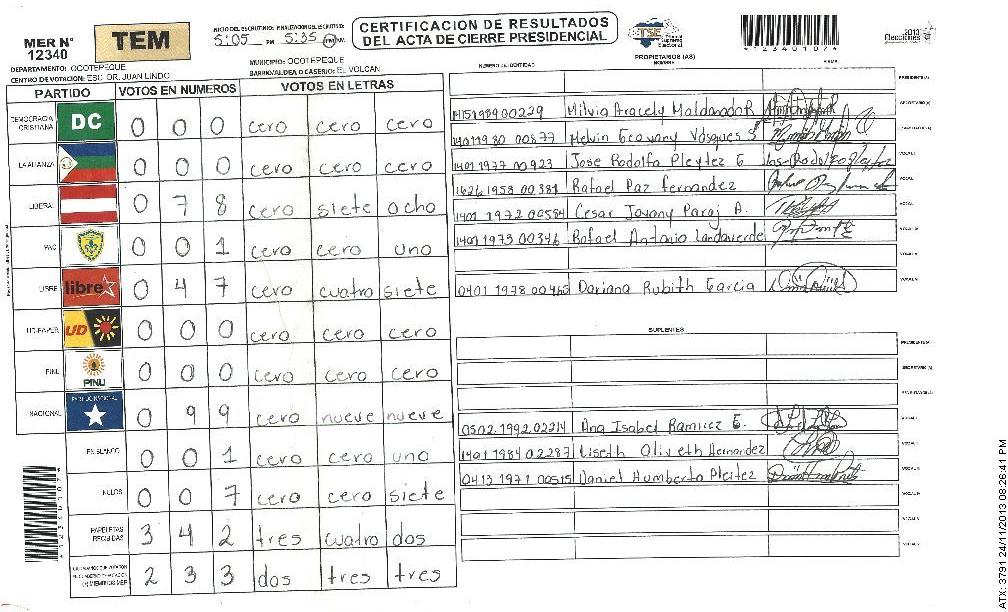 MER Nº 12340
TEM
INICIO DEL ESCRUTINIO: FINALIZACION DEL ESCRUTINIO:
5:05 PM 5:35 PM
CERTIFICACION DE RESULTADOS
DEL ACTA DE CIERRE PRESIDENCIAL
TSE
2013
Elecciones
*1234010?*
DEPARTAMENTO: OCOTEPEQUE
MUNICIPIO: OCOTEPEQUE
CENTRO DE VOTACION: EBC. DR. JUAN LINDO
BARRIO/ALDEA O CASERIO: EL VOLCAN
PARTIDO VOTOS EN NUMEROS VOTOS EN LETRAS
DEMOCRACIA CRISTIANA DC 0 0 0 cero cero cero
LA ALIANZA 0 0 0 cero cero cero
LIBERAL 0 7 8 cero siete ocho
PAC 0 0 1 cero cero uno
LIBRE libre 0 4 7 cero cuatro siete
UD-FAPER UD 0 0 0 cero cero cero
PINU PINU 0 0 0 cero cero cero
NACIONAL PARTIDO NACIONAL 0 9 9 cero nueve nueve
EN BLANCO 0 0 1 cero cero uno
NULOS 0 0 7 cero cero siete
PAPELETAS RECIBIDAS 3 4 2 tres cuatro dos
2 3 3 dos tres tres
NUMERO DE IDENTIDAD PROPIETARIOS (AS) NOMBRE FIRMA
PRESIDENTE(A)
Milvia Aracely Maldonado R SECRETARIO(A)
1401 1980 00877 Melvin Geovany Vasques
1401 1977 00923 Jose Rodolfo Pleytez G VOCAL I
1626 1958 00381 Rafael Paz fernandez VOCAL
1401 1972 00584 Cesar Jovany VOCAL
1401 1973 00346 Rafael Antonio Landaverde
VOCAL
0401 1978 00463 Dariana Rubith Garcia VOCAL
SUPLENTES
PRESIDENTE(A)
SECRETARIO(A)
0502 1992 02214 Ana Isabel Ramirez G. VOCAL I
1401 1984 02287 Liseth Oliveth Hernandez VOCAL
0413 1971 00515 Daniel Humberto Pleitez VOCAL
VOCAL
VOCAL
VOCAL
ATX: 3791 24/11/2013 08:26:41 PM